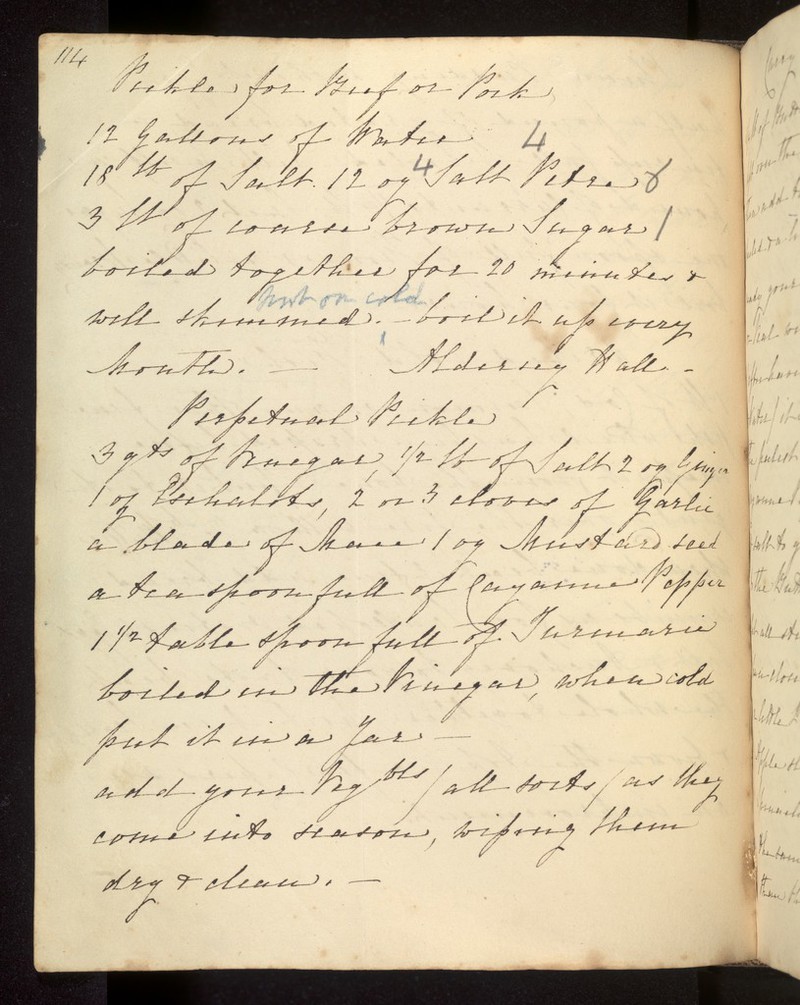 114
Pickle for Beef or Pork
12 Gallons of Water 4
18 lb of Salt. 12 oz 4 Salt Petre 8
3 lb of coarse brown Sugar 1
boiled together for 20 minutes &
put on cold
well skimmed. - boil it up every
Month. — Aldersey Hall. -
Perpetual Pickle
3 qts of Vinegar, 1/2 lb of Salt 2 oz Ginger
1 oz Eschalots, 2 or 3 cloves of Garlic
a blade of Mace 1 oz Mustard seed
a tea spoon full of Cayanne Pepper
1 1/2 table spoon full of Turmaric
boiled in the Vinegar, when cold
put it in a Jar —
add your Vegbls / all sorts / as they
come into season, wiping them
dry & clean. —